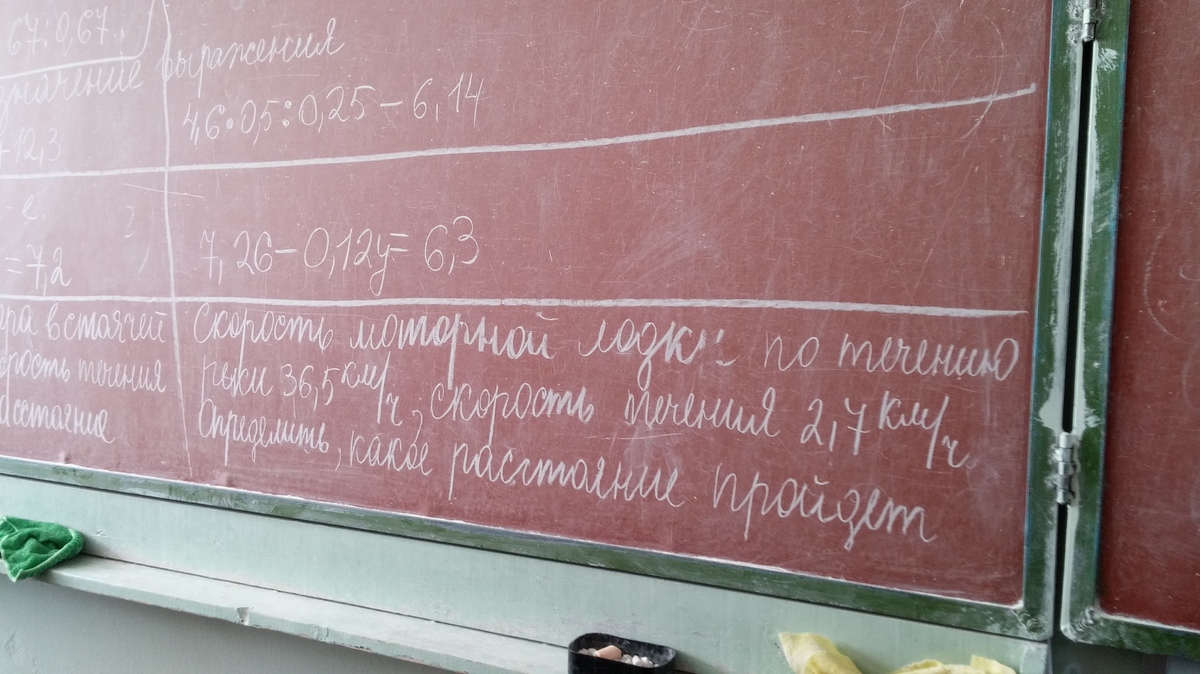 67:0,67
значение выражения
4,6·0,5:0,25-6,14
+12,3
7,26-0,12y=6,3
=7,2
в стоячей
течения
Скорость моторной лодки по течению
реки 36,5 км/ч, скорость течения 2,7 км/ч
Определить, какое расстояние пройдет